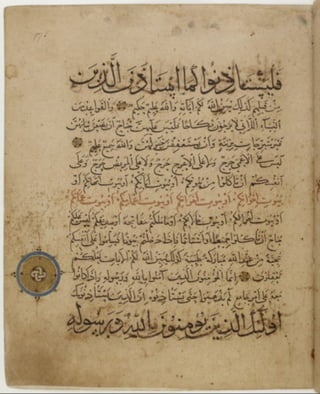 فليستأذنوا كما استأذن الذين
من قبلهم كذلك يبين الله لكم آياته والله عليم حكيم والقواعد من
النساء اللاتي لا يرجون نكاحا فليس عليهن جناح أن يضعن ثيابهن
غير متبرجات بزينة وأن يستعففن خير لهن والله سميع عليم
ليس على الأعمى حرج ولا على الأعرج حرج ولا على المريض حرج ولا على
أنفسكم أن تأكلوا من بيوتكم أو بيوت آبائكم أو بيوت أمهاتكم أو
بيوت إخوانكم أو بيوت أخواتكم أو بيوت أعمامكم أو بيوت عماتكم
أو بيوت أخوالكم أو بيوت خالاتكم أو ما ملكتم مفاتحه أو صديقكم ليس عليكم
جناح أن تأكلوا جميعا أو أشتاتا فإذا دخلتم بيوتا فسلموا على أنفسكم
تحية من عند الله مباركة طيبة كذلك يبين الله لكم الآيات لعلكم
تعقلون إنما المؤمنون الذين آمنوا بالله ورسوله وإذا كانوا
معه على أمر جامع لم يذهبوا حتى يستأذنوه إن الذين يستأذنونك
أولئك الذين يؤمنون بالله ورسوله